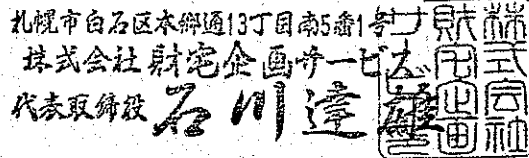 札幌市白石区本郷通13丁目南5番1号
株式会社財宅企画サービス
代表取締役 石川達雄
株式会社
財宅企画
サービス